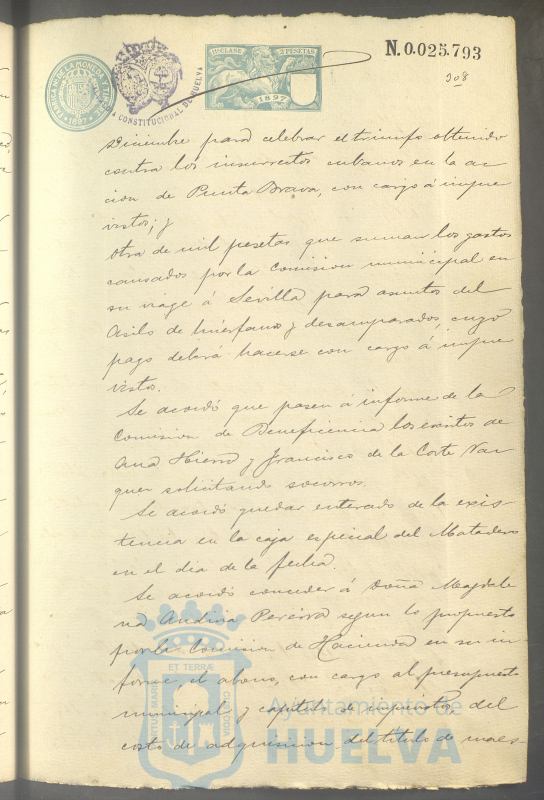 FABRICA NAL. DE LA MONEDA Y TIMBRE
1897
A. CONSTITUCIONAL DE HUELVA
11ª CLASE 2 PESETAS
1897
N.0.025.793
308
Diciembre para celebrar el triunfo obtenido
contra los insurrectos cubanos en la ac
cion de Punta Brava, con cargo á impre
vistos; y
otra de mil pesetas que suman los gastos
causados por la Comision municipal en
su viage á Sevilla para asuntos del
Asilo de huérfanos y desamparados, cuyo
pago deberá hacerse con cargo á impre
vistos.
Se acordó que pasen á informe de la
Comision de Beneficencia los escritos de
Ana Hierro y Francisco de la Corte Vaz
quez solicitando socorros.
Se acordó quedar enterado de la exis-
tencia en la caja especial del Matadero
en el dia de la fecha.
Se acordó conceder á Doña Magdale
na Andivia Pererra segun lo propuesto
por la Comision de Hacienda en su in-
forme el abono, con cargo al presupuesto
municipal y capitulo de imprevistos, del
costo de adquisicion del titulo de maes-
PORTUS MARIS ET TERRÆ CUSTODIA
Ayuntamiento de
HUELVA